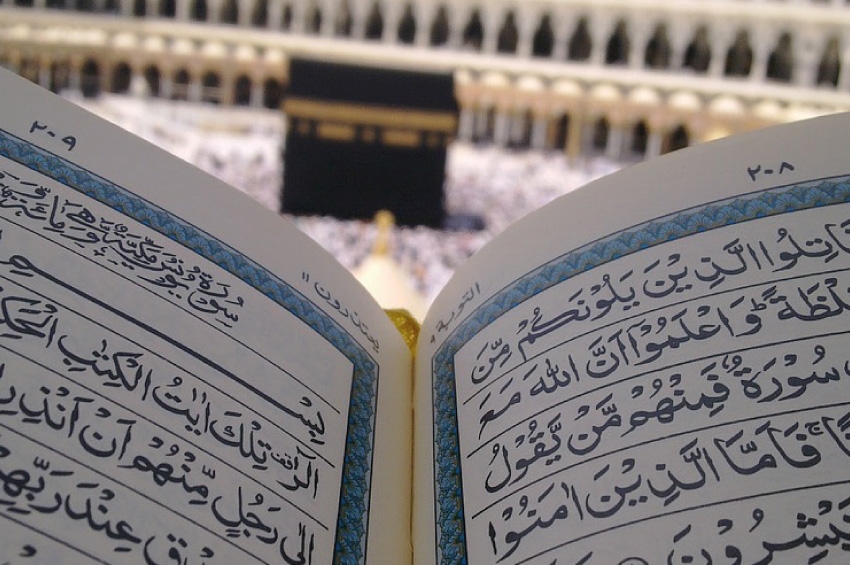 ٢٠٨
التوبة ٩
قَاتِلُوا الَّذِيْنَ يَلُوْنَكُمْ مِّنَ
غِلْظَةً ؕ وَاعْلَمُوْۤا اَنَّ اللّٰهَ مَعَ
سُوْرَةٌ فَمِنْهُمْ مَّنْ يَّقُوْلُ
فَاَمَّا الَّذِيْنَ اٰمَنُوْا
بْشِرُوْنَ
٢٠٩
يعتذرون ١١
سُوْرَةُ يُوْنُسَ مَكِّيَّةٌ وَّهِيَ مِائَةٌ
بِسْمِ
الٓرٰ تِلْكَ اٰيٰتُ الْكِتٰبِ الْحَكِيْ
اِلٰى رَجُلٍ مِّنْهُمْ اَنْ اَنْذِرِ
عِنْدَ رَبِّهِمْ